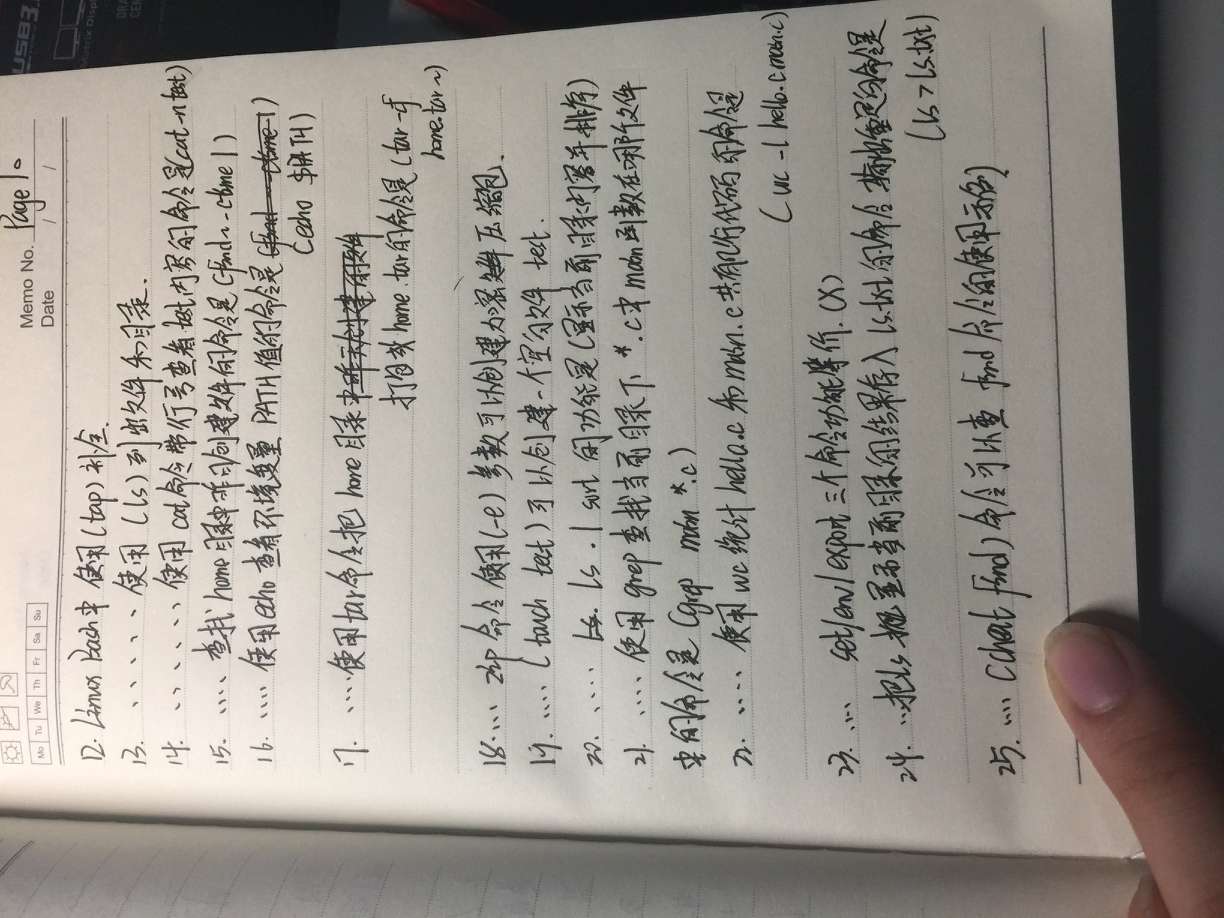 Memo No. Page 1。
Date / /
Mo Tu We Th Fr Sa Su
12. Linux Bach中 使用(tap)补全.
13. 、、、、、使用 (ls) 列出文件和目录.
14. 、、、、、、使用 cat命令带行号查看test内容的命令是(cat -n test)
15. .... 查找home目录中昨日创建文件的命令是 (find ~ -ctime 1)
16. .... 使用echo 查看环境变量 PATH值的命令是 (find ctime 1)
(echo $PATH)
17. ....使用tar命令把 home 目录
打包成 home.tar的命令是 (tar -cf
home.tar ~)
18.... zip 命令 使用(-e) 参数可以创建加密压缩包.
19. .... (touch test) 可以创建一个空的文件 test.
20. .... ls. | sort 的功能是(显示当前目录内容并排序)
21. .... 使用 grep 查找当前目录下 *.c中 main函数在哪个文件
中的命令是 (grep main *.c)
22. .... 使用 wc 统计 hello.c 和 main.c 共有几行代码的命令是
( wc -l hello.c main.c)
23. .... set/env/export 三个命令功能等价. (X)
24. ...把ls 显示当前目录的结果存入 ls.txt 的命令是
(ls > ls.txt)
25. .... (cheat find) 命令可以查 find 命令的使用示例